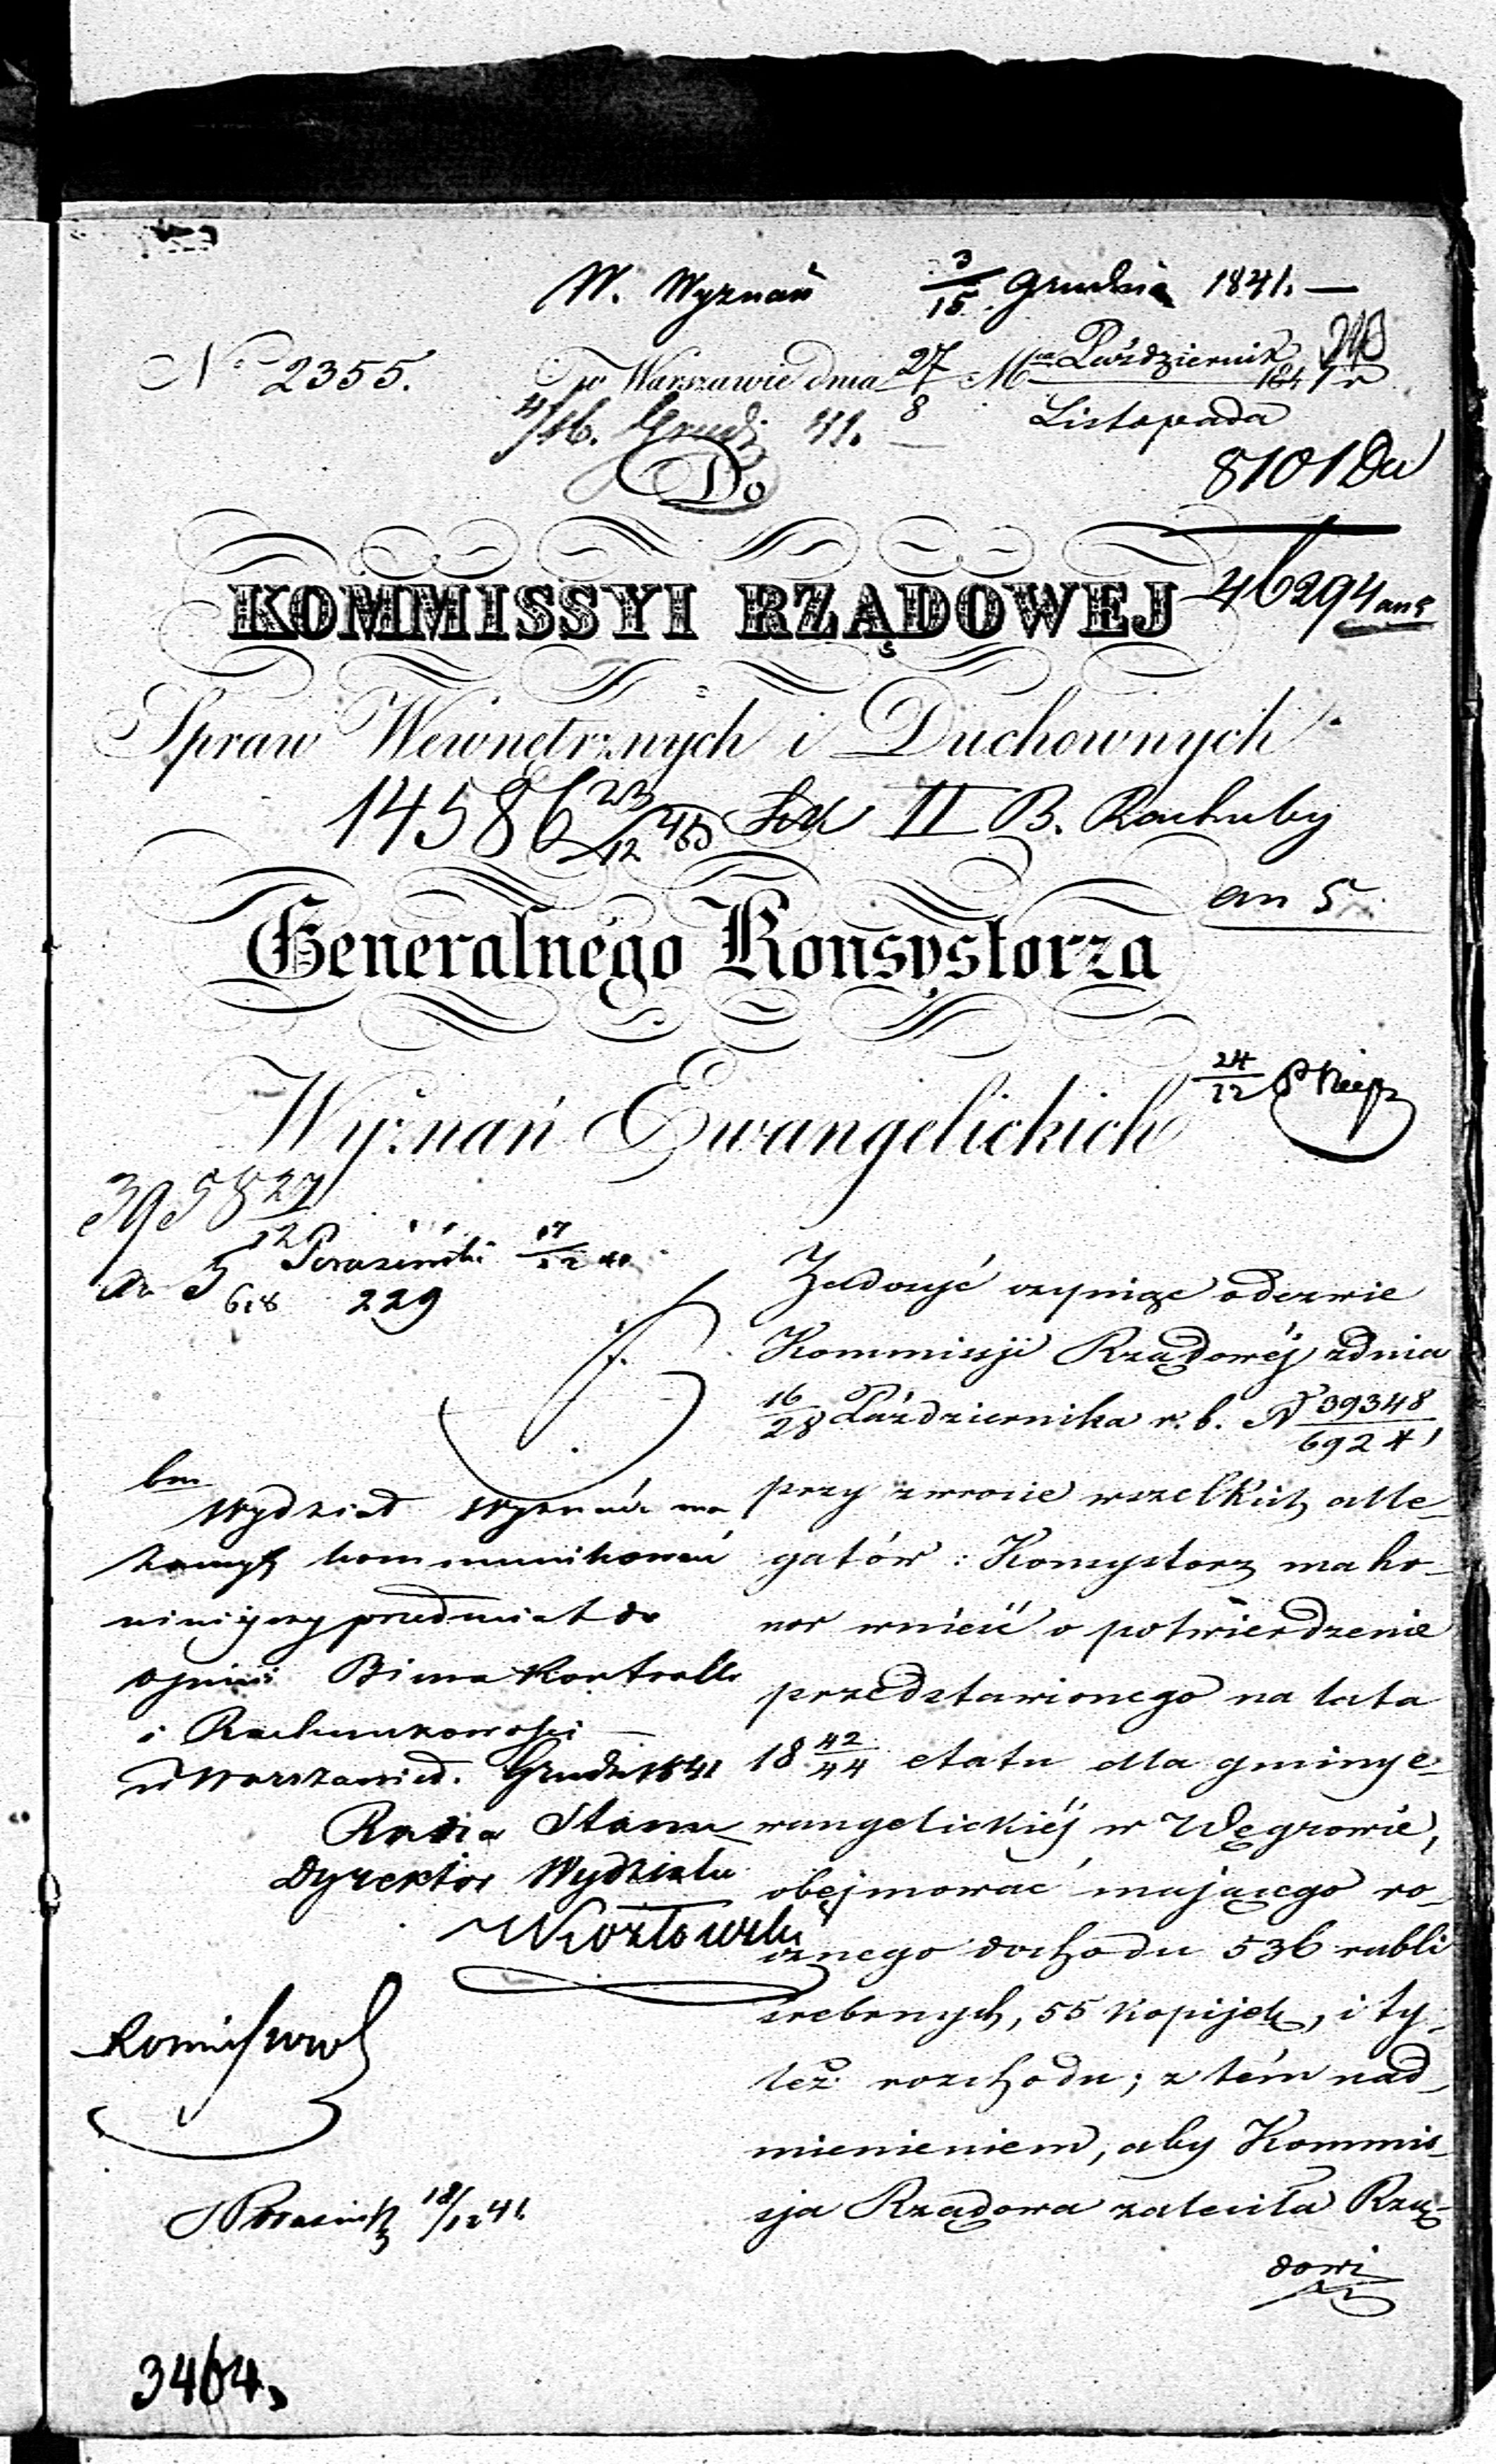 W. Wyznań 3/15 Grudnia 1841. —
No 2355. w Warszawie dnia 27/8 Mca Październik/Listopada 1841 r.
4/16. Grud. 41. —
8101 Du
Do
KOMMISSYI RZĄDOWEJ
46294 an 5
Spraw Wewnętrznych i Duchownych
14586 23/12 II B. Rachuby
an 5
Generalnego Konsystorza
24/12
Wyznań Ewangelickich
3958 27/12
17/12
229
Zadosyć czyniąc odezwie
Kommissji Rządowéj z dnia
16/28 Października r. b. N 39348/692 41
przy zwrocie wszelkich alle-
gatów: Konsystorz ma ho-
nor wnieść o potwierdzenie
przedstawionego na lata
18 42/44 etatu dla gminy e-
wangelickiéj w Węgrowie,
obejmować mającego ro-
cznego dochodu 536 rubli
srebrnych, 55 kopijek, i ty-
leż rozchodu; z tém nad-
mienieniem, aby Kommis-
sja Rządowa zaleciła Rzą-
dowi
Wydział Wyznań ma
kommunikować
niniejszy przedmiot do
opinii Biura Kontrolli
i Rachunkowości —
w Warszawie d. Grudn 1841
Radca Stanu
Dyrektor Wydziału
18/12 41
3464.